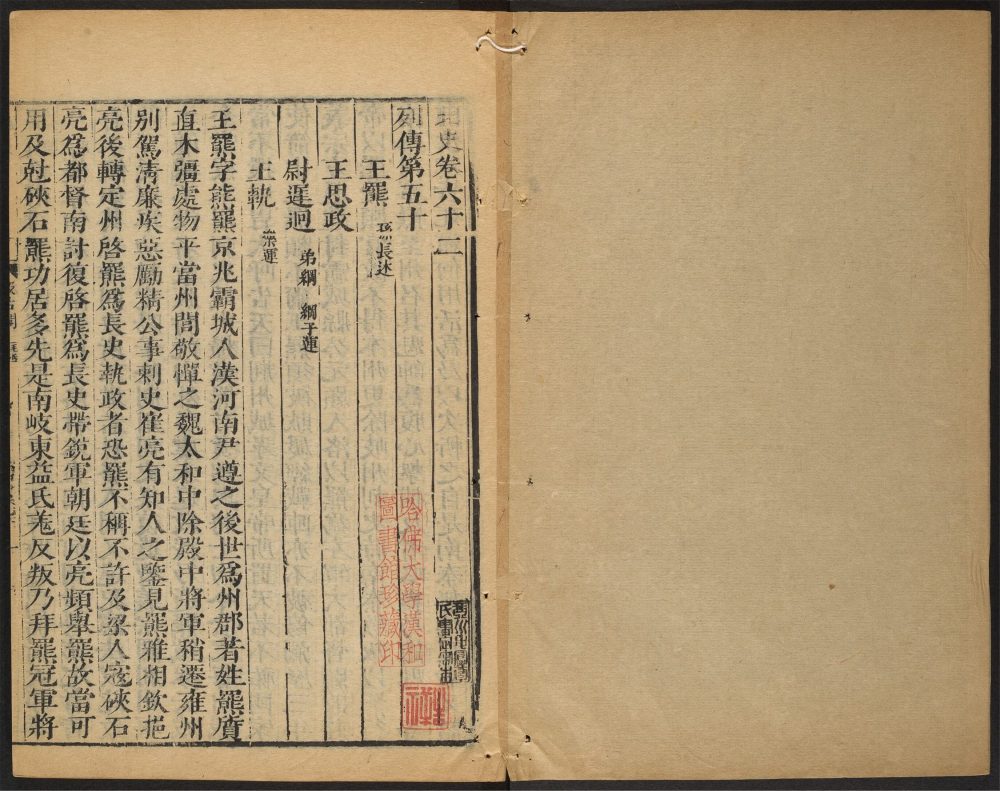 北史卷六十二
列傳第五十
王羆 孫長述
王思政
尉遲迥 弟綱 綱子運
王軌 樂運
王羆字熊羆京兆霸城人漢河南尹遵之後世爲州郡著姓羆質
直木彊處物平當州閭敬憚之魏太和中除殿中將軍稍遷雍州
別駕淸廉疾惡勵精公事刺史崔亮有知人之鑒見羆雅相欽挹
亮後轉定州啓羆爲長史執政者恐羆不稱不許及梁人寇硤石
亮爲都督南討復啓羆爲長史帶銳軍朝廷以亮頻舉羆故當可
用及尅硤石羆功居多先是南岐東益氐羌反叛乃拜羆冠軍將
哈佛大學漢和
圖書館珍藏印